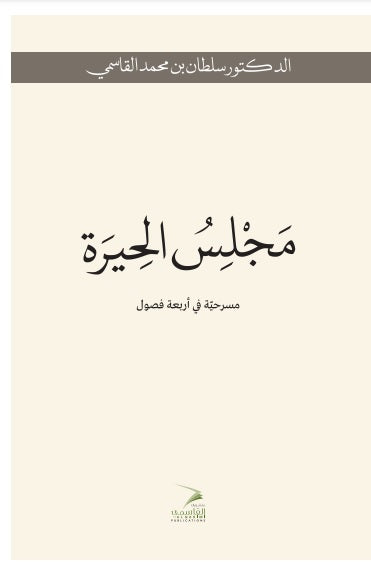 الدكتور سلطان بن محمد القاسمي
مَجْلِسُ الحِيرَة
مسرحيّة في أربعة فصول
منشورات
القاسمي
AL QASIMI
PUBLICATIONS